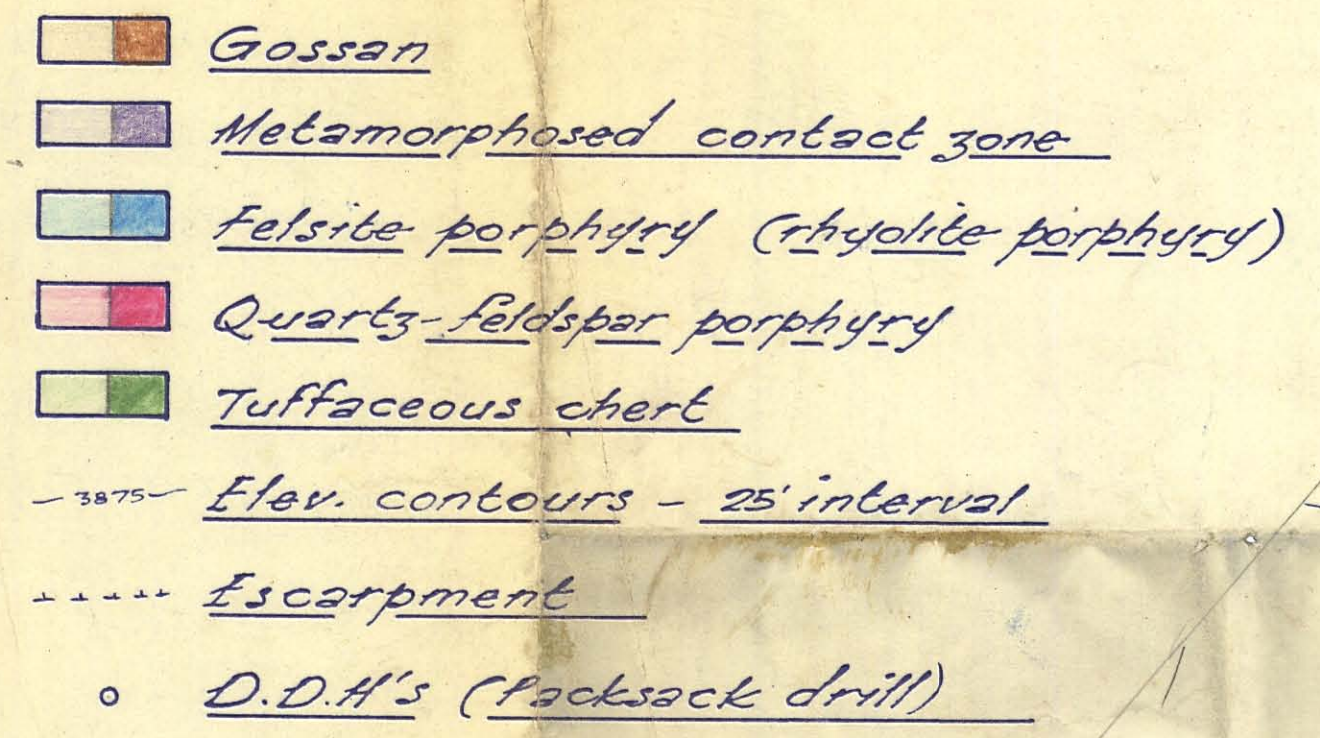 Gossan
Metamorphosed contact zone
Felsite porphyry (rhyolite porphyry)
Quartz-feldspar porphyry
Tuffaceous chert
3875 Elev. contours - 25' interval
Escarpment
D.D.H's (Packsack drill)